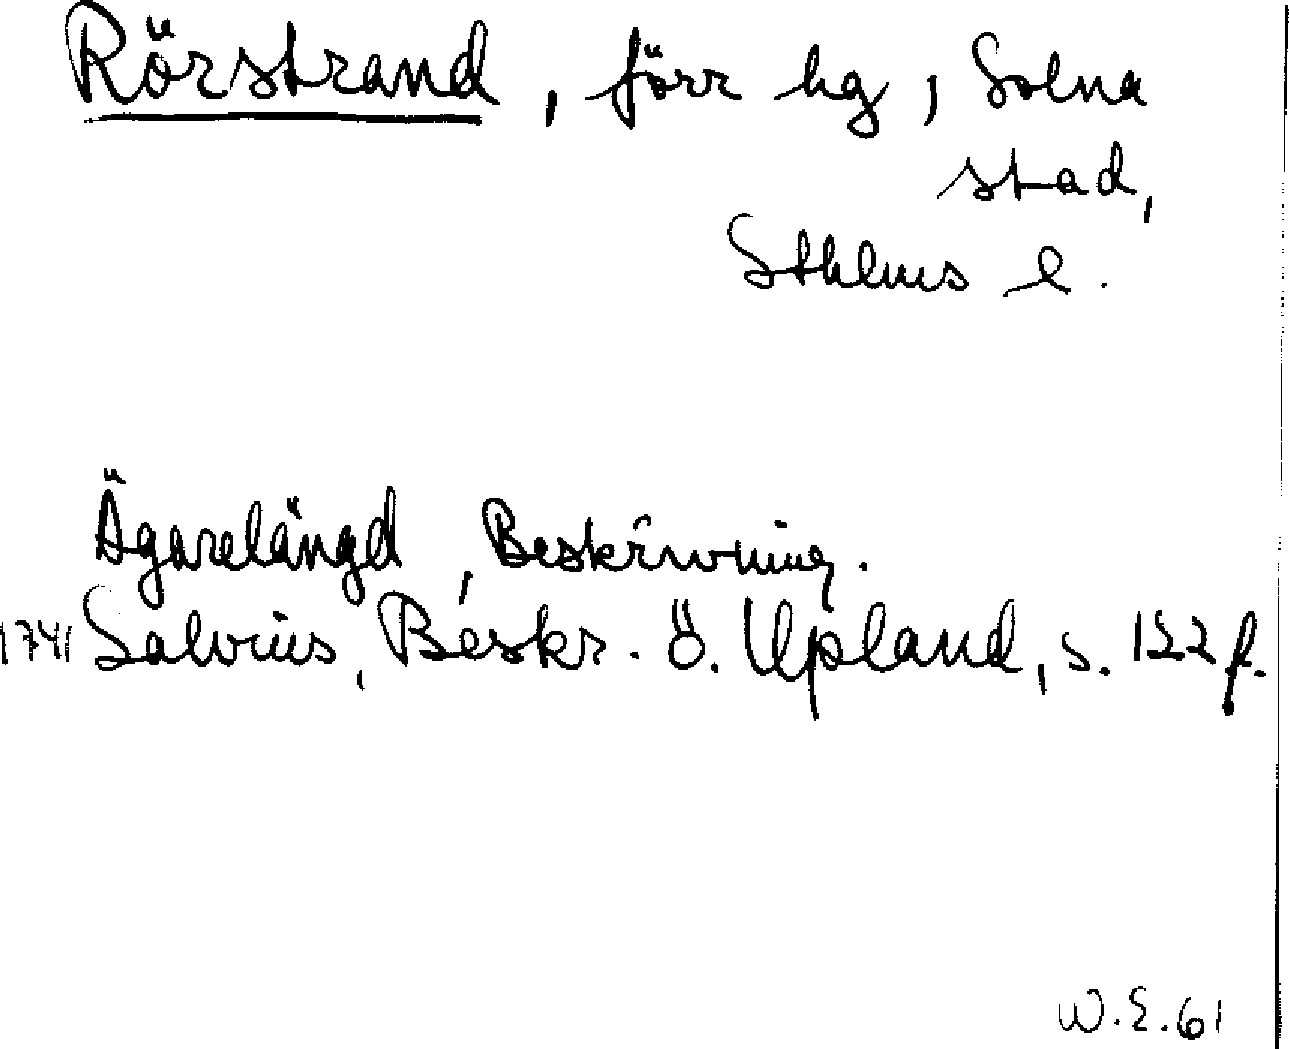 Rörstrand, förr hg, Solna
stad,
Sthlms l.
Ägarelängd, Beskrivning.
1741 Salvius, Beskr. ö. Upland, s. 122 f.
W.E.61